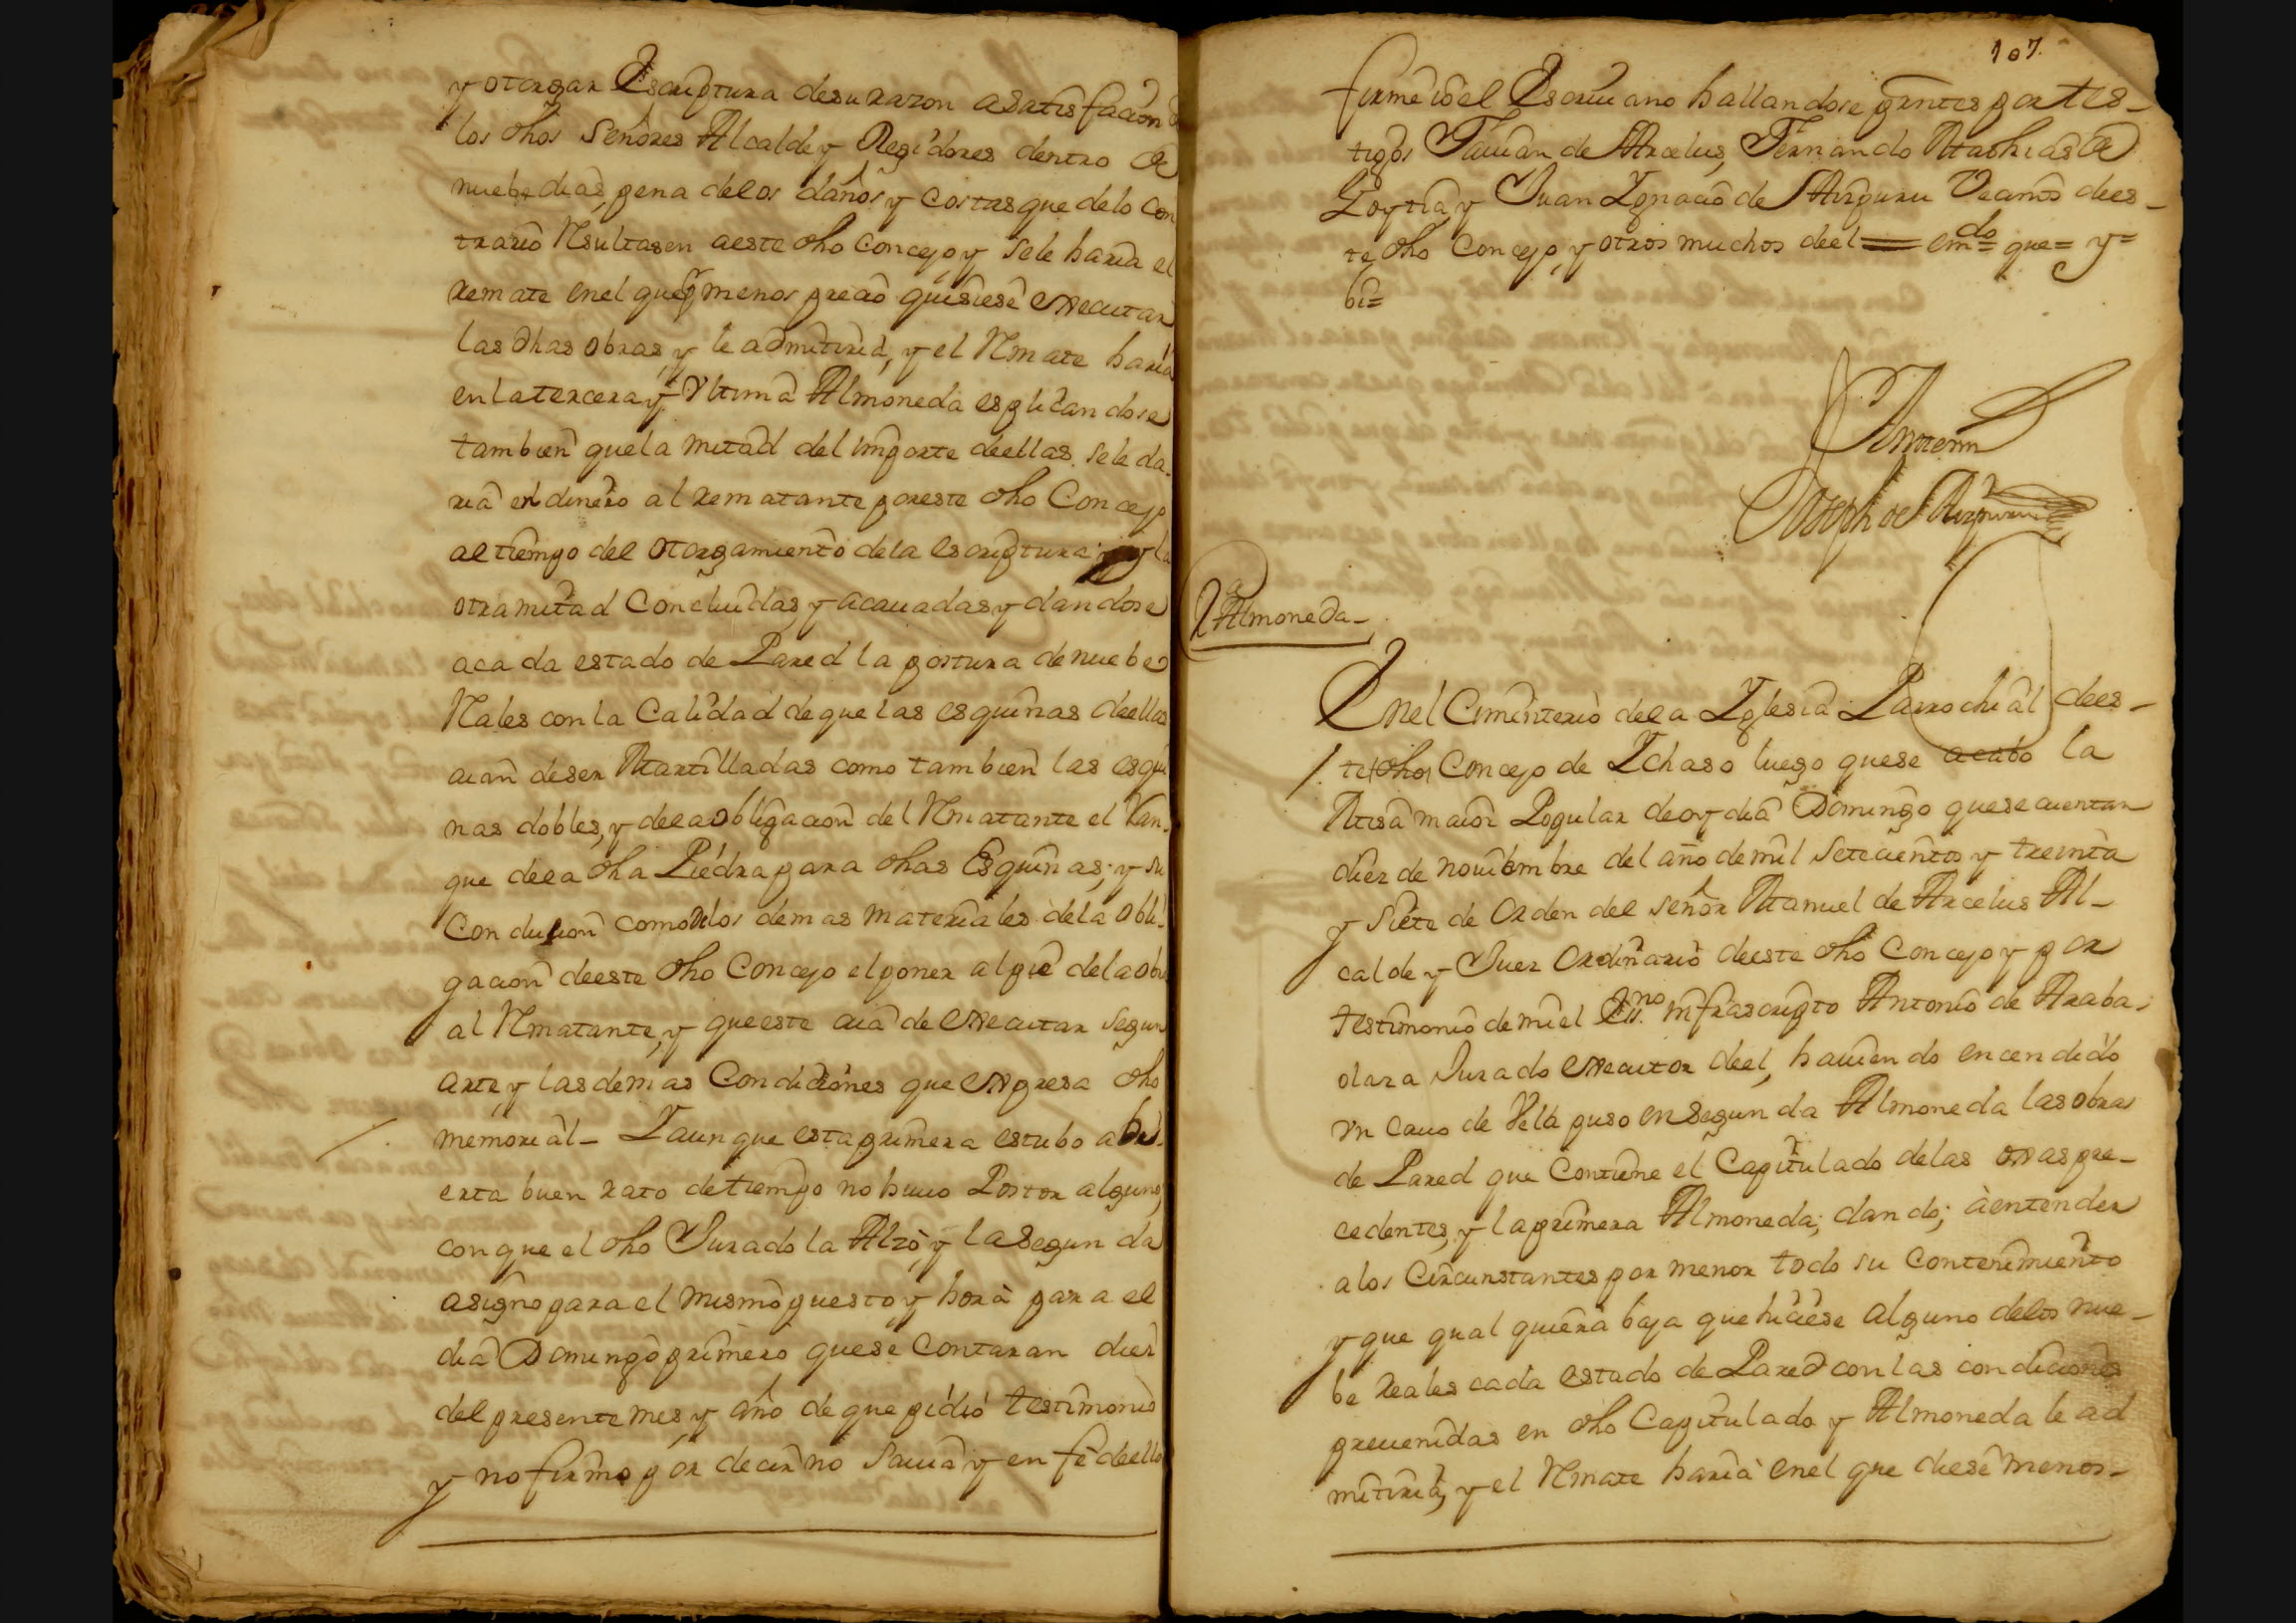 y otorgar Escriptura desu razon a satisfacion de
los dhos Señores Alcalde y Regidores dentro de
nuebe dias, pena delos daños y costas que delo con
trario Resultasen aeste dho Concejo, y sele haria el
remate enel que p.r menos precio quisiese executar
las dhas obras, y le admitiria, y el Rmate haria
enlatercera y Vltima Almoneda esplicandose
tambien quela mitad del importe deellas sele da-
ria en dinero al rematante poreste dho Concejo
altiempo del otorgamiento dela escriptura y la
otra mitad Concluidas, y acauadas y dandose
acada estado de Pared la postura de nuebe
Reales con la Calidad de que las esquinas deellas
aian deser Martilladas como tambien las esqui
nas dobles, y dela obligacion del Rmatante el Ran-
que dela dha Piedra para dhas Esquinas; y su
Conducion como delos demas materiales dela obli-
gacion deeste dho Concejo el poner al pie dela obra
al Rmatante, y queeste aia de executar segun
arte, y lasdemas Condiciones que expresa dho
memorial- Y aunque esta primera estubo abi-
erta buen rato detiempo no huuo Postor alguno,
conque el dho Jurado la Alzò, y la segunda
asigno para el mismo puesto, y hora para el
dia Domingo primero quese Contaran diez
del presente mes, y año de que pidió testimonio
y no firmo por decir no sauia y en fè deello
107.
firme io el Escriuano hallandose presntes por tes-
tigos Jauian de Arcelus, Fernando Mathias de
Goytia, y Juan Ignacio de Aizpuru Vecinos dees-
te dho Concejo, y otros muchos deel = em.do = que = y =
bi =
Antemi
Joseph de Aizpuru
2.a Almoneda-
Enel Cimenterio dela Iglesia Parrochial dees-
te dho Concejo de Ichaso luego quese acabo la
Misa maior Popular deoy dia Domingo quese cuentan
diez de nouiembre del año de mil setecientos y treinta
y siete de orden del señor Manuel de Arcelus Al-
calde y Juez Ordinario deeste dho Concejo y por
testimonio de mi el Ess.no infrascripto Antonio de Araba-
olaza Jurado executor deel, hauiendo encendido
vn cauo de Vela puso en segunda Almoneda las obras
de Pared que Contiene el Capitulado delas oxas pre-
cedentes, y la primera Almoneda; dando; à entender
a los Circunstantes por menor todo su Contenimiento
y que qual quiera baja que hiciese alguno delos nue-
be Reales cada estado de Pared con las condiciones
preuenidas en dho Capitulado y Almoneda le ad
mitiria, y el Rmate haria enel que diese menos-